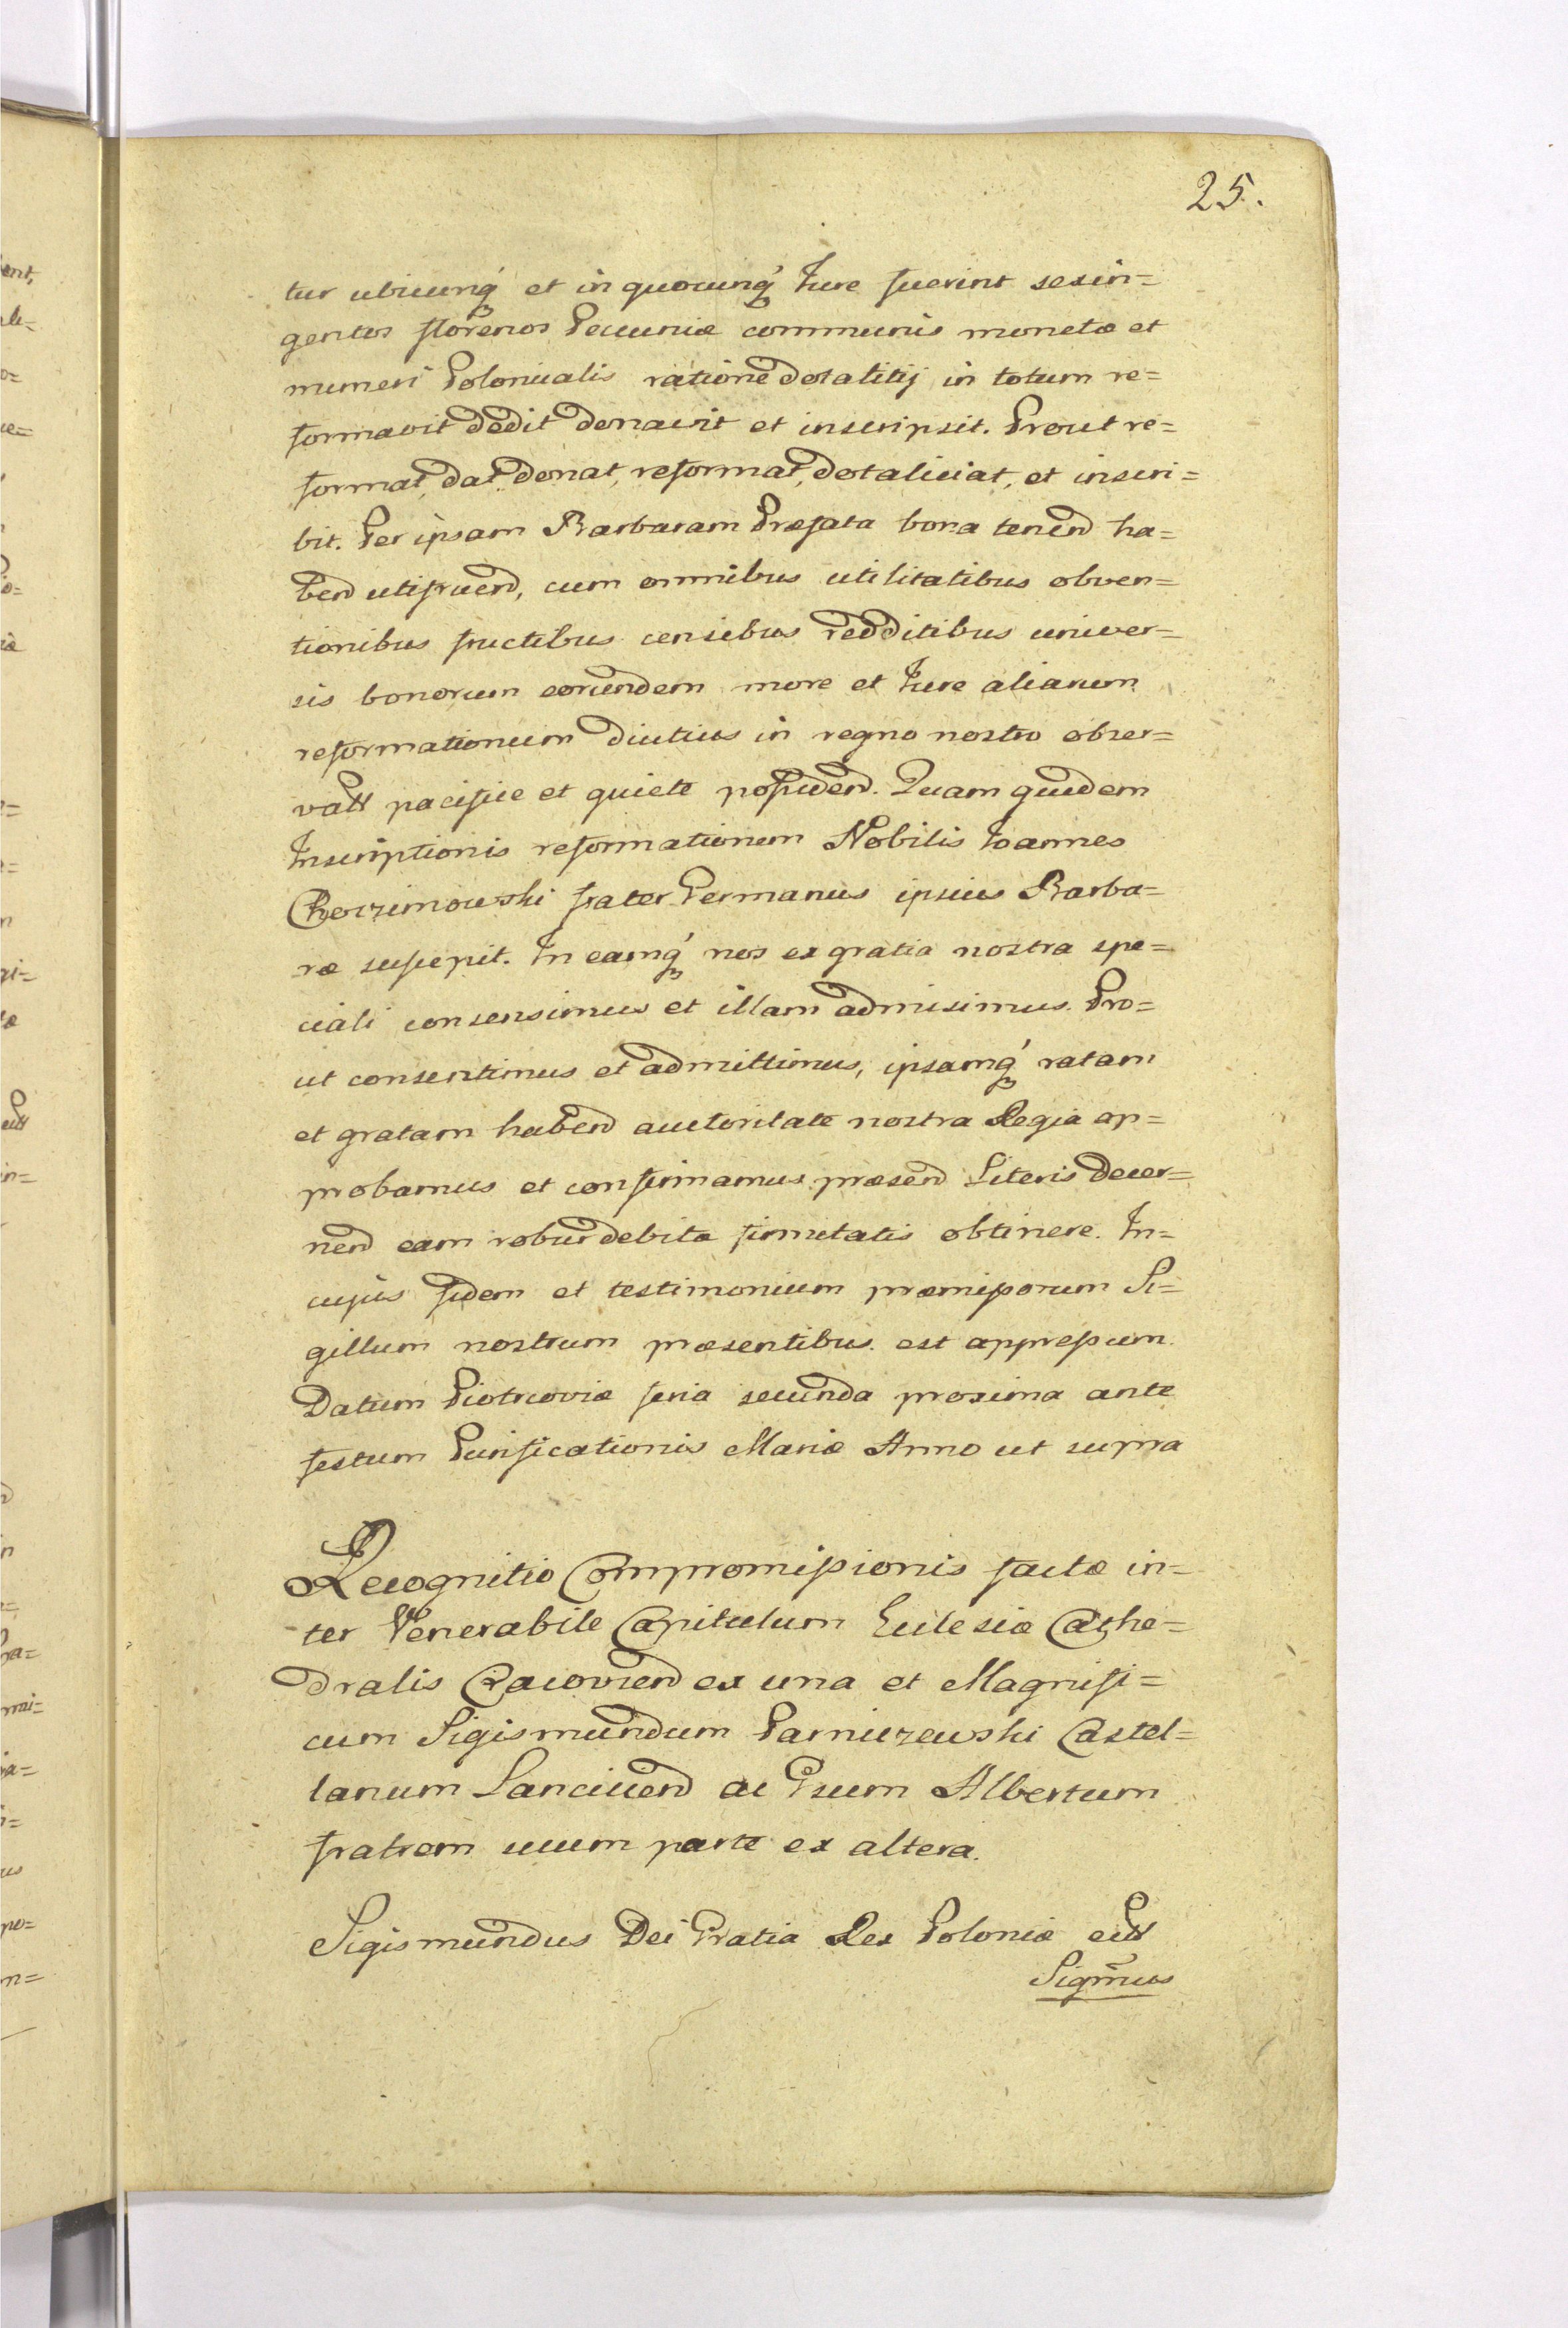 25.
tur ubicunq́ et in quocunq́ Jure fuerint sexin=
gentos florenos Pecuniæ communis monetæ et
numeri Polonicalis ratione dotalitij in totum re=
formavit dedit donavit et inscripsit. Prout re=
format, dat donat, reformat, dotaliciat, et inscri=
bit. Per ipsam Barbaram Præfata bona tenend ha=
bend utifruend, cum omnibus utilitatibus obven=
tionibus fructibus censibus redditibus univer=
sis bonorum eorundem more et Jure aliarum
reformationum diutius in regno nostro obser=
vatt pacifice et quiete possidend. Quam quidem
Inscriptionis reformationem Nobilis Joannes
Choczimowski frater Germanus ipsius Barba=
ræ suscepit. In eamq́ nos ex gratia nostra spe=
ciali consensimus et illam admisimus. Pro=
ut consentimus et admittimus, ipsamq́ ratam
et gratam habend auctoritate nostra Regia ap=
probamus et confirmamus præsend Literis decer=
nend eam robur debitæ firmitatis obtinere. In=
cujus fidem et testimonium præmissorum Si=
gillum nostrum præsentibus est appressum.
Datum Piotrcoviæ feria secunda proxima ante
festum Purificationis Mariæ Anno ut supra
Recognitio Compromissionis factæ in=
ter Venerabile Capitulum Eclesiæ Cathe=
dralis Cracoviend ex una et Magnifi=
cum Sigismundum Parniczewski Castel=
lanum Lanciciend ac Gsum Albertum
fratrem suum parte ex altera.
Sigismundus Dei Gratia Rex Poloniæ ett
Sigm̃us